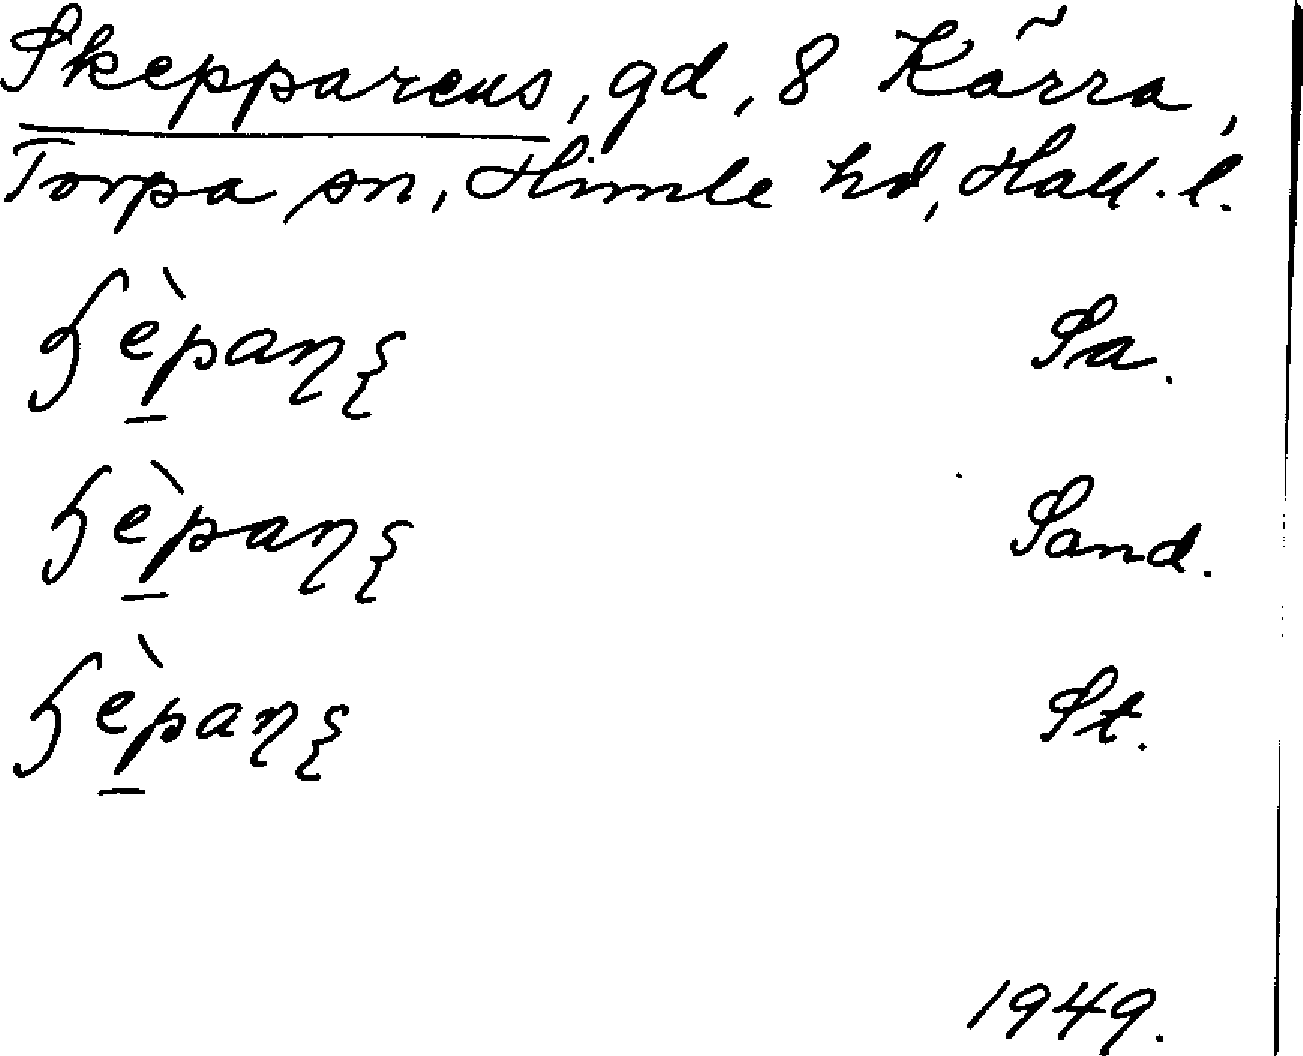 Skepparens, gd, 8 Kärra,
Torpa sn, Himle hd, Hall. l.
Sa.
Sand.
St.
1949.